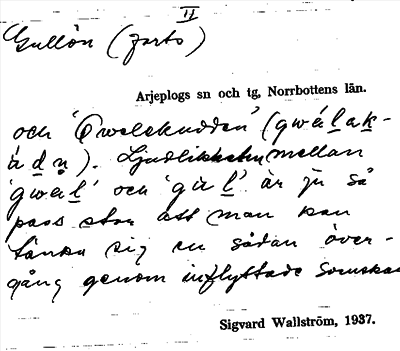 II
Gullön (forts)
Arjeplogs sn och tg, Norrbottens län.
och 'Qvelekudden' (gwálak-
ádn). Ljudlikheten mellan
'gwàl' och 'gàl' är ju så
pass stor att man kan
tänka sig en sådan över-
gång genom inflyttade svenskar
Sigvard Wallström, 1937.